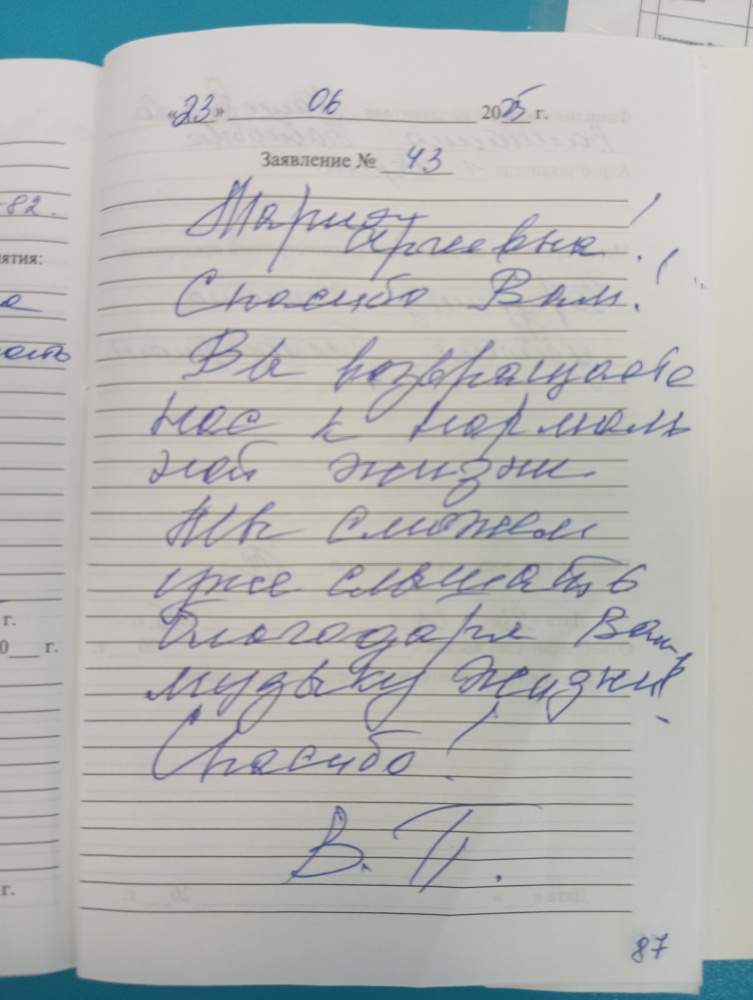 -82.
ятия:
а
ость
г.
0___ г.
г.
«23» 06 2025 г.
Заявление № 43
Мария
Сергеевна!
Спасибо Вам!
Вы возвращаете
нас к нормаль
ной жизни
Мы сможем
уже слышать
благодаря Вам,
музыку жизни!
Спасибо!
В. П.
87